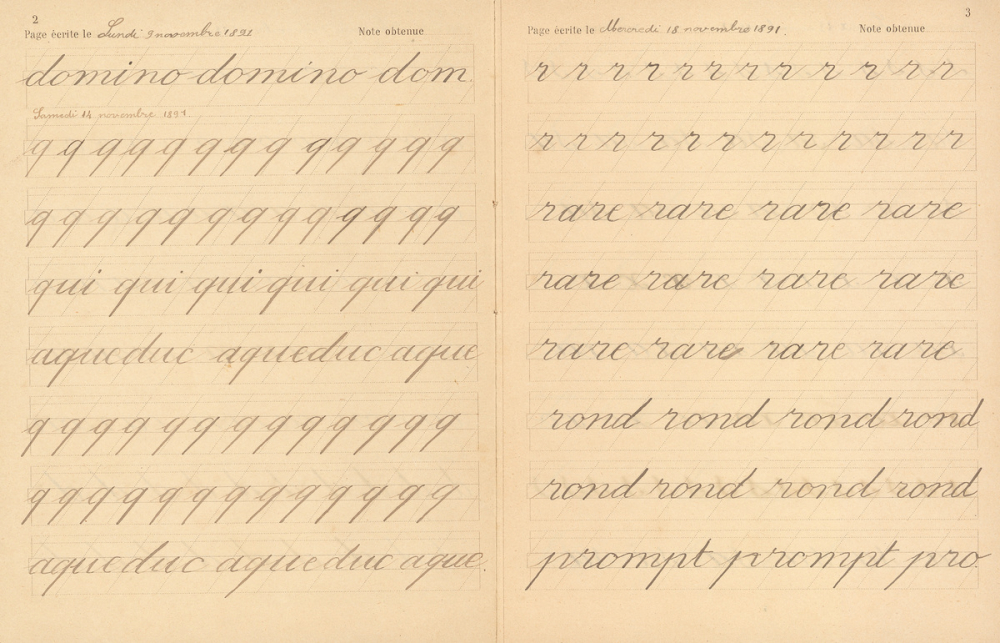 2
Page écrite le Lundi 9 novembre 1891 Note obtenue
domino domino dom
Samedi 14 novembre 1891.
q q q q q q q q q q q q q q
q q q q q q q q q q q q q q
qui qui qui qui qui qui
aqueduc aqueduc aque
q q q q q q q q q q q q q q
q q q q q q q q q q q q q q
aqueduc aqueduc aque
3
Page écrite le Mercredi 18 novembre 1891. Note obtenue
r r r r r r r r r r r r
r r r r r r r r r r r r
rare rare rare rare
rare rare rare rare
rare rare rare rare
rond rond rond rond
rond rond rond rond
prompt prompt pro